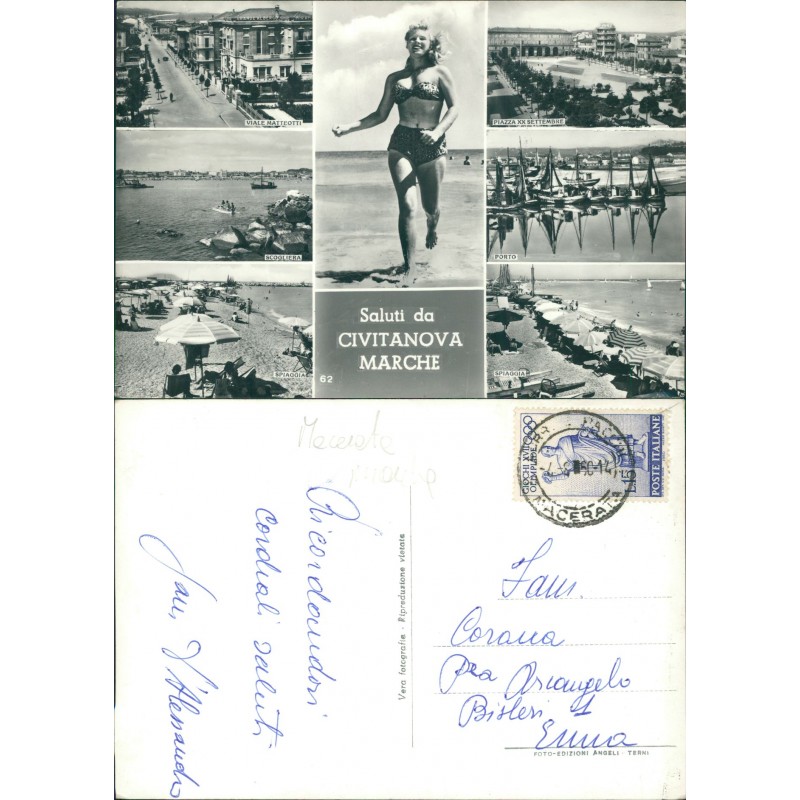 VIALE MATTEOTTI
PIAZZA XX SETTEMBRE
SCOGLIERA
PORTO
Saluti da
CIVITANOVA
MARCHE
SPIAGGIA
SPIAGGIA
62
Macerata
GIOCHI XVII
OLIMPIADE
POSTE ITALIANE
MACERATA
Ricordandovi
cordiali saluti
Fam. D'Alessandro
Vera fotografia - Riproduzione vietata
Fam.
Corona
P.za Arcangelo
Bisleri 1
Enna
FOTO-EDIZIONI ANGELI - TERNI